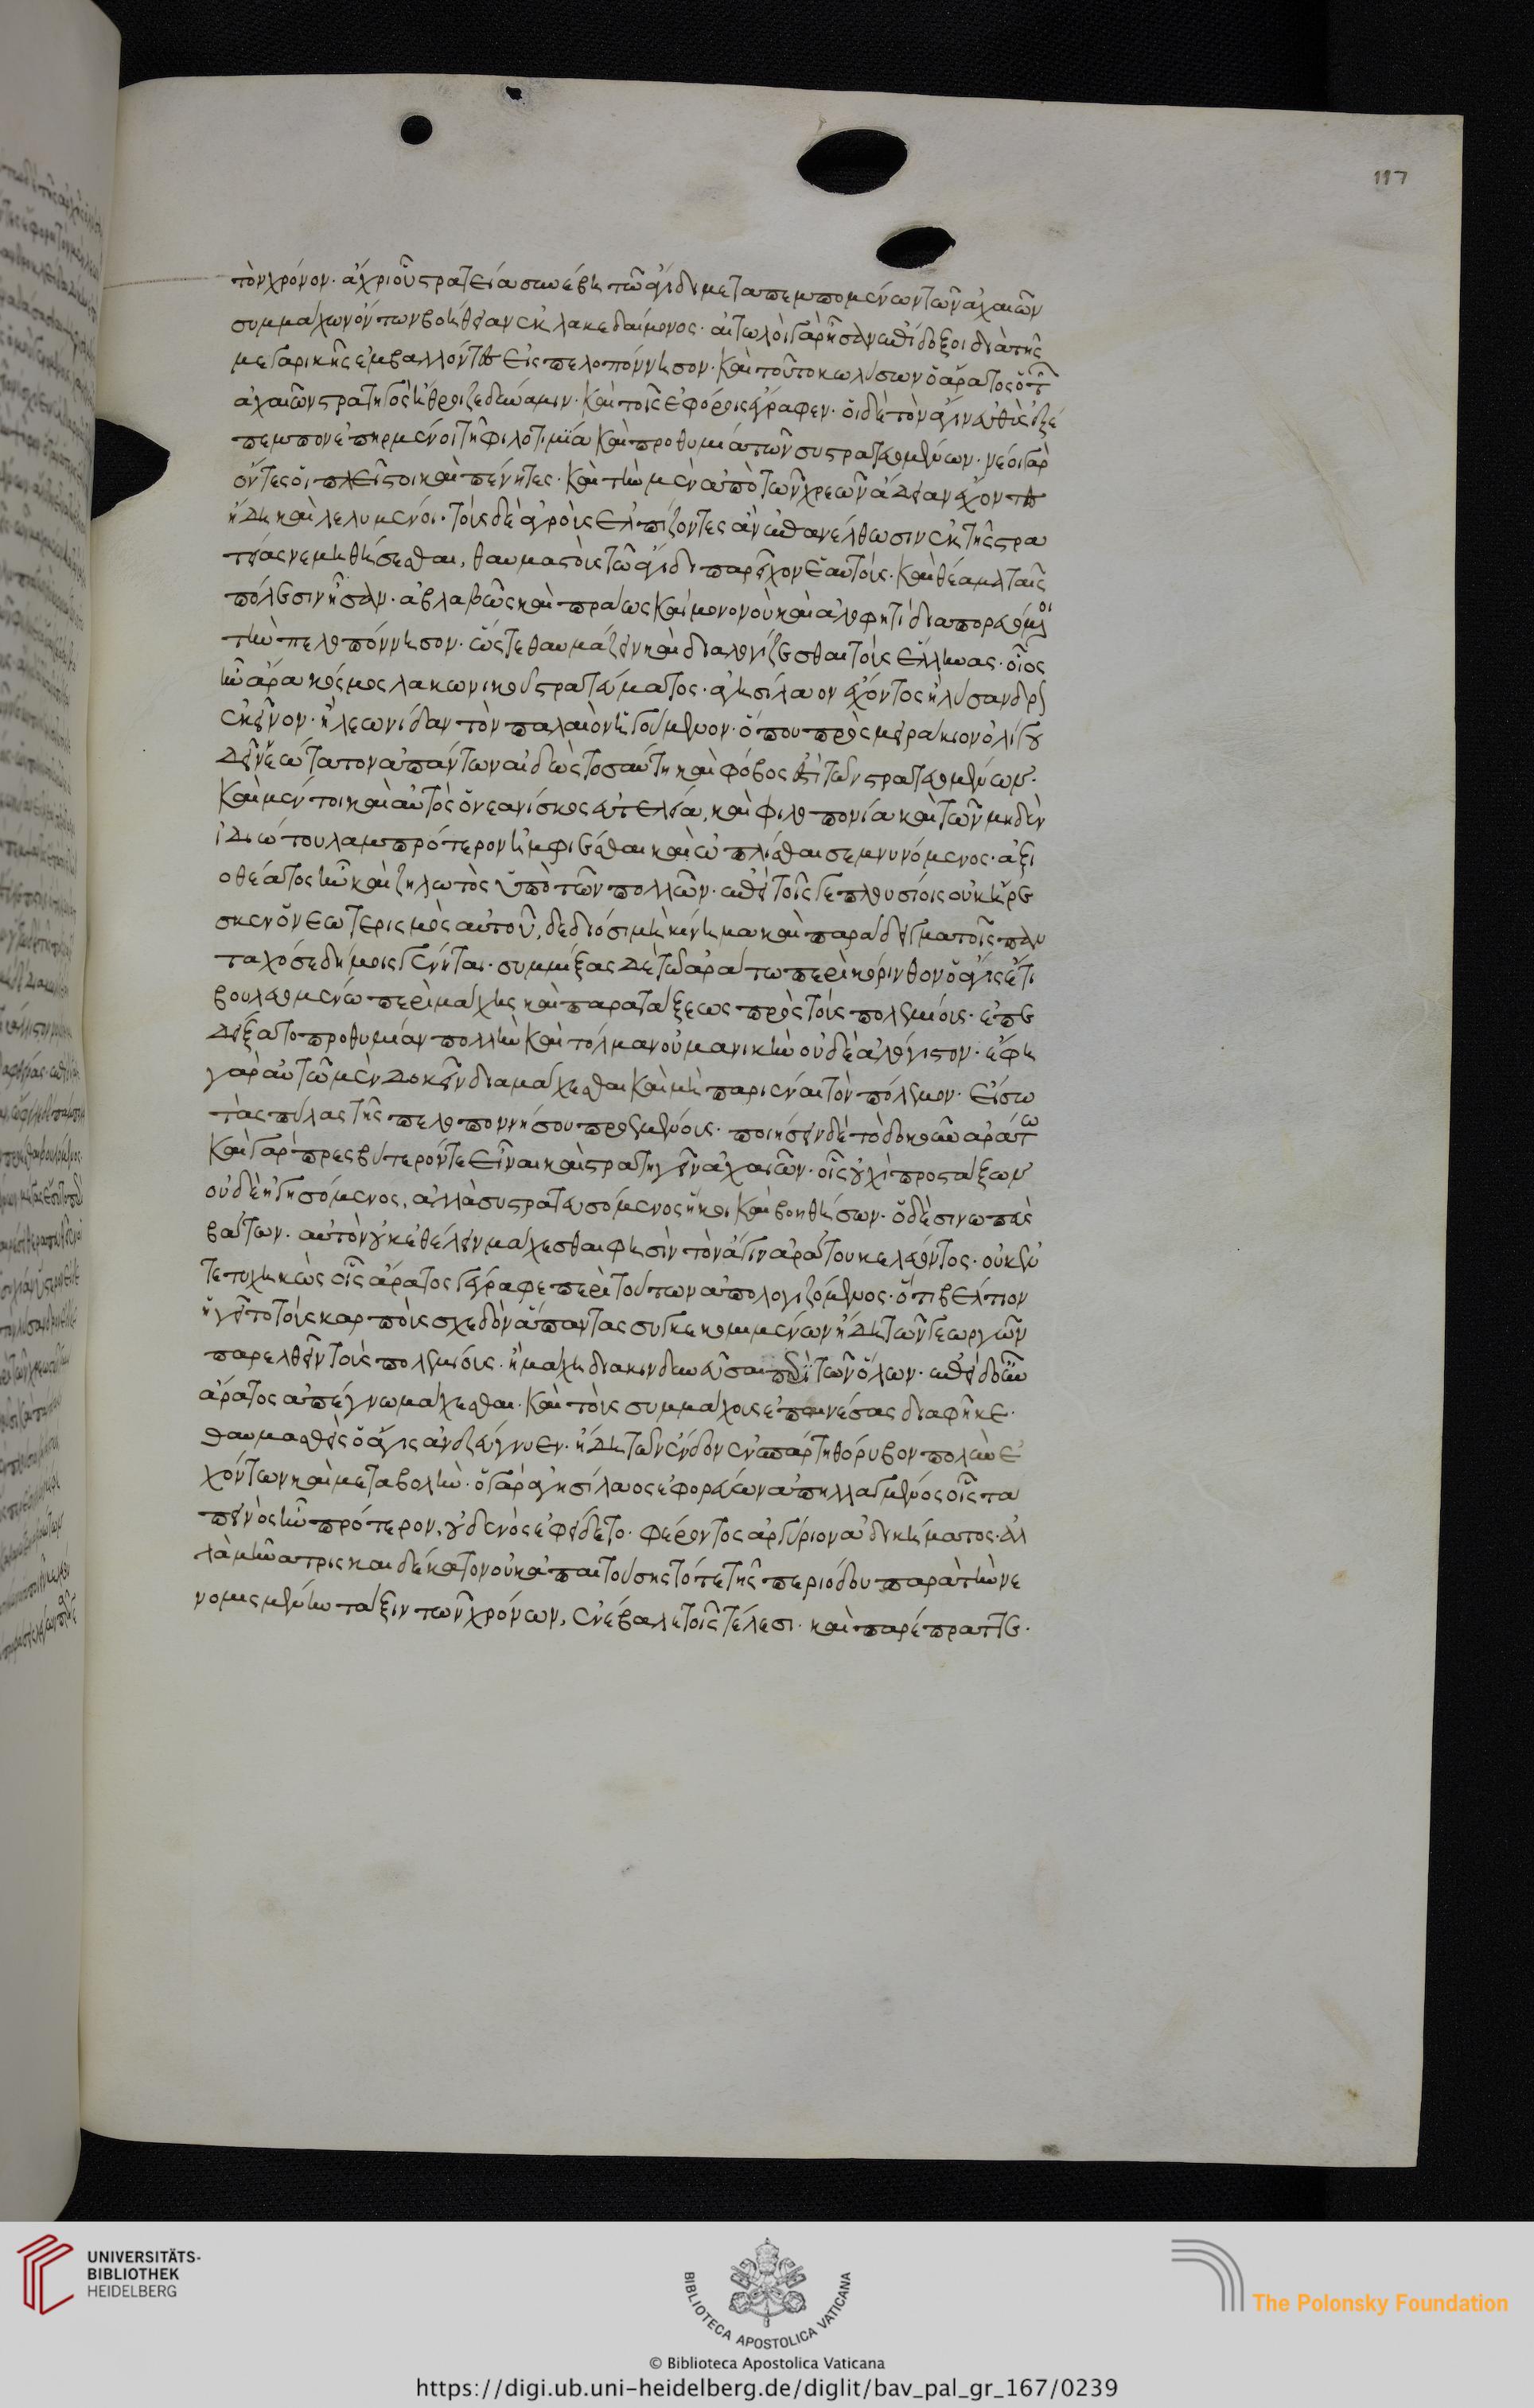 117
τὸν χρόνον. ἄχρι οὗ στρατεία συνέβη τῷ ἄγιδι μεταπεμπομένων τῶν ἀχαιῶν
συμμάχων ὄντων βοήθειαν ἐκ λακεδαίμονος. αἰτωλοὶ γὰρ ἦσαν ἐπίδοξοι διὰ τῆς
μεγαρικῆς ἐμβαλλόντες εἰς πελοπόννησον. καὶ τοῦτο κωλύσων ὁ ἄρατος ὁ τῶν
ἀχαιῶν στρατηγὸς ἤθροιζε δύναμιν. καὶ τοῖς ἐφόροις ἔγραφεν. οἱ δὲ τὸν ἄγιν εὐθὺς ἐξέ
πεμπον ἐπηρμένοι τῇ φιλοτιμίᾳ καὶ προθυμίᾳ τῶν συστρατευομένων. νέοι γὰρ
ὄντες οἱ πλεῖστοι καὶ πένητες. καὶ τὴν μὲν ἀπὸ τῶν χρεῶν ἄδειαν ἔχοντες
ἤδη καὶ λελυμένοι. τοὺς δὲ ἀγροὺς ἐλπίζοντες ἂν ἐπανέλθωσιν ἐκ τῆς στρα
τείας νεμηθήσεσθαι, θαυμαστοὺς τῷ ἄγιδι παρεῖχον ἑαυτούς. καὶ θέαμα ταῖς
πόλεσιν ἦσαν. ἀβλαβῶς καὶ πράως καὶ μονονοὺ καὶ ἀψοφητὶ διαπορευόμενοι
τὴν πελοπόννησον. ὥστε θαυμάζειν καὶ διαλογίζεσθαι τοὺς ἕλληνας. οἷος
ἦν ἄρα κόσμος λακωνικοῦ στρατεύματος. ἀγησίλαον ἔχοντος ἢ λύσανδρον
ἐκεῖνον. ἢ λεωνίδαν τὸν παλαιὸν ἡγούμενον. ὅπου πρὸς μειράκιον ὀλίγου
δεῖν νεώτατον ἁπάντων αἰδὼς τοσαύτη καὶ φόβος ἐστὶ τῶν στρατευομένων.
καὶ μέντοι καὶ αὐτὸς ὁ νεανίσκος εὐτελείᾳ, καὶ φιλοπονίᾳ καὶ τῶν μηδὲν
ἰδιώτου λαμπρότερον ἠμφιέσθαι καὶ ὡπλίσθαι σεμνυνόμενος. ἀξι
οθέατος ἦν καὶ ζηλωτὸς ὑπὸ τῶν πολλῶν. ἐπεὶ τοῖς γε πλουσίοις οὐκ ἤρε
σκεν ὁ νεωτερισμὸς αὐτοῦ, δεδιόσι μὴ κίνημα καὶ παράδειγμα τοῖς παν
ταχόσε δήμοις γένηται. συμμίξας δὲ τῷ ἀράτῳ περὶ κόρινθον ὁ ἄγις ἔτι
βουλευομένῳ περὶ μάχης καὶ παρατάξεως πρὸς τοὺς πολεμίους. ἐπε
δείξατο προθυμίαν πολλὴν καὶ τόλμαν οὐ μανικὴν οὐδὲ ἀλόγιστον. ἔφη
γὰρ αὐτῷ μὲν δοκεῖν διαμάχεσθαι καὶ μὴ παριέναι τὸν πόλεμον. εἴσω
τὰς πύλας τῆς πελοποννήσου προεμένους. ποιήσειν δὲ τὸ δοκοῦν ἀράτῳ
καὶ γὰρ πρεσβύτερόν τε εἶναι καὶ στρατηγεῖν ἀχαιῶν. οἷς οὐχὶ προστάξων
οὐδὲ ἡγησόμενος, ἀλλὰ συστρατευσόμενος ἥκοι καὶ βοηθήσων. ὁ δὲ σινωπεὺς
βάτων. αὐτὸν οὐκ ἐθέλειν μάχεσθαι φησὶν τὸν ἄγιν ἀράτου κελεύοντος. οὐκ ἐν
τετυχηκὼς οἷς ἄρατος γέγραφε περὶ τούτων ἀπολογιζόμενος. ὅτι βέλτιον
ἡγεῖτο τοὺς καρποὺς σχεδὸν ἅπαντας συγκεκομισμένων ἤδη τῶν γεωργῶν
παρελθεῖν τοὺς πολεμίους. ἢ μάχῃ διακινδυνεῦσαι περὶ τῶν ὅλων. ἐπεὶ δ᾽ οὖν
ἄρατος ἀπέγνω μάχεσθαι. καὶ τοὺς συμμάχους ἐπαινέσας διαφῆκε.
θαυμασθεὶς ὁ ἄγις ἀνεζεύγνυεν. ἤδη τῶν ἔνδον ἐν σπάρτῃ θόρυβον πολὺν ἐ
χόντων καὶ μεταβολήν. ὁ γὰρ ἀγησίλαος ἐφορεύων ἀπηλλαγμένος οἷς τα
πεινὸς ἦν πρότερον, οὐδενὸς ἐφείδετο. φέροντος ἀργύριον ἀδικήματος. ἀλ
λὰ μῆνα τρισκαιδέκατον οὐκ ἀπαιτούσης τότε τῆς περιόδου παρὰ τὴν νε
νομισμένην τάξιν τῶν χρόνων, ἐνέβαλε τοῖς τέλεσι. καὶ παρέπραττε.
UNIVERSITÄTS-
BIBLIOTHEK
HEIDELBERG
BIBLIOTECA APOSTOLICA VATICANA
The Polonsky Foundation
© Biblioteca Apostolica Vaticana
https://digi.ub.uni-heidelberg.de/diglit/bav_pal_gr_167/0239